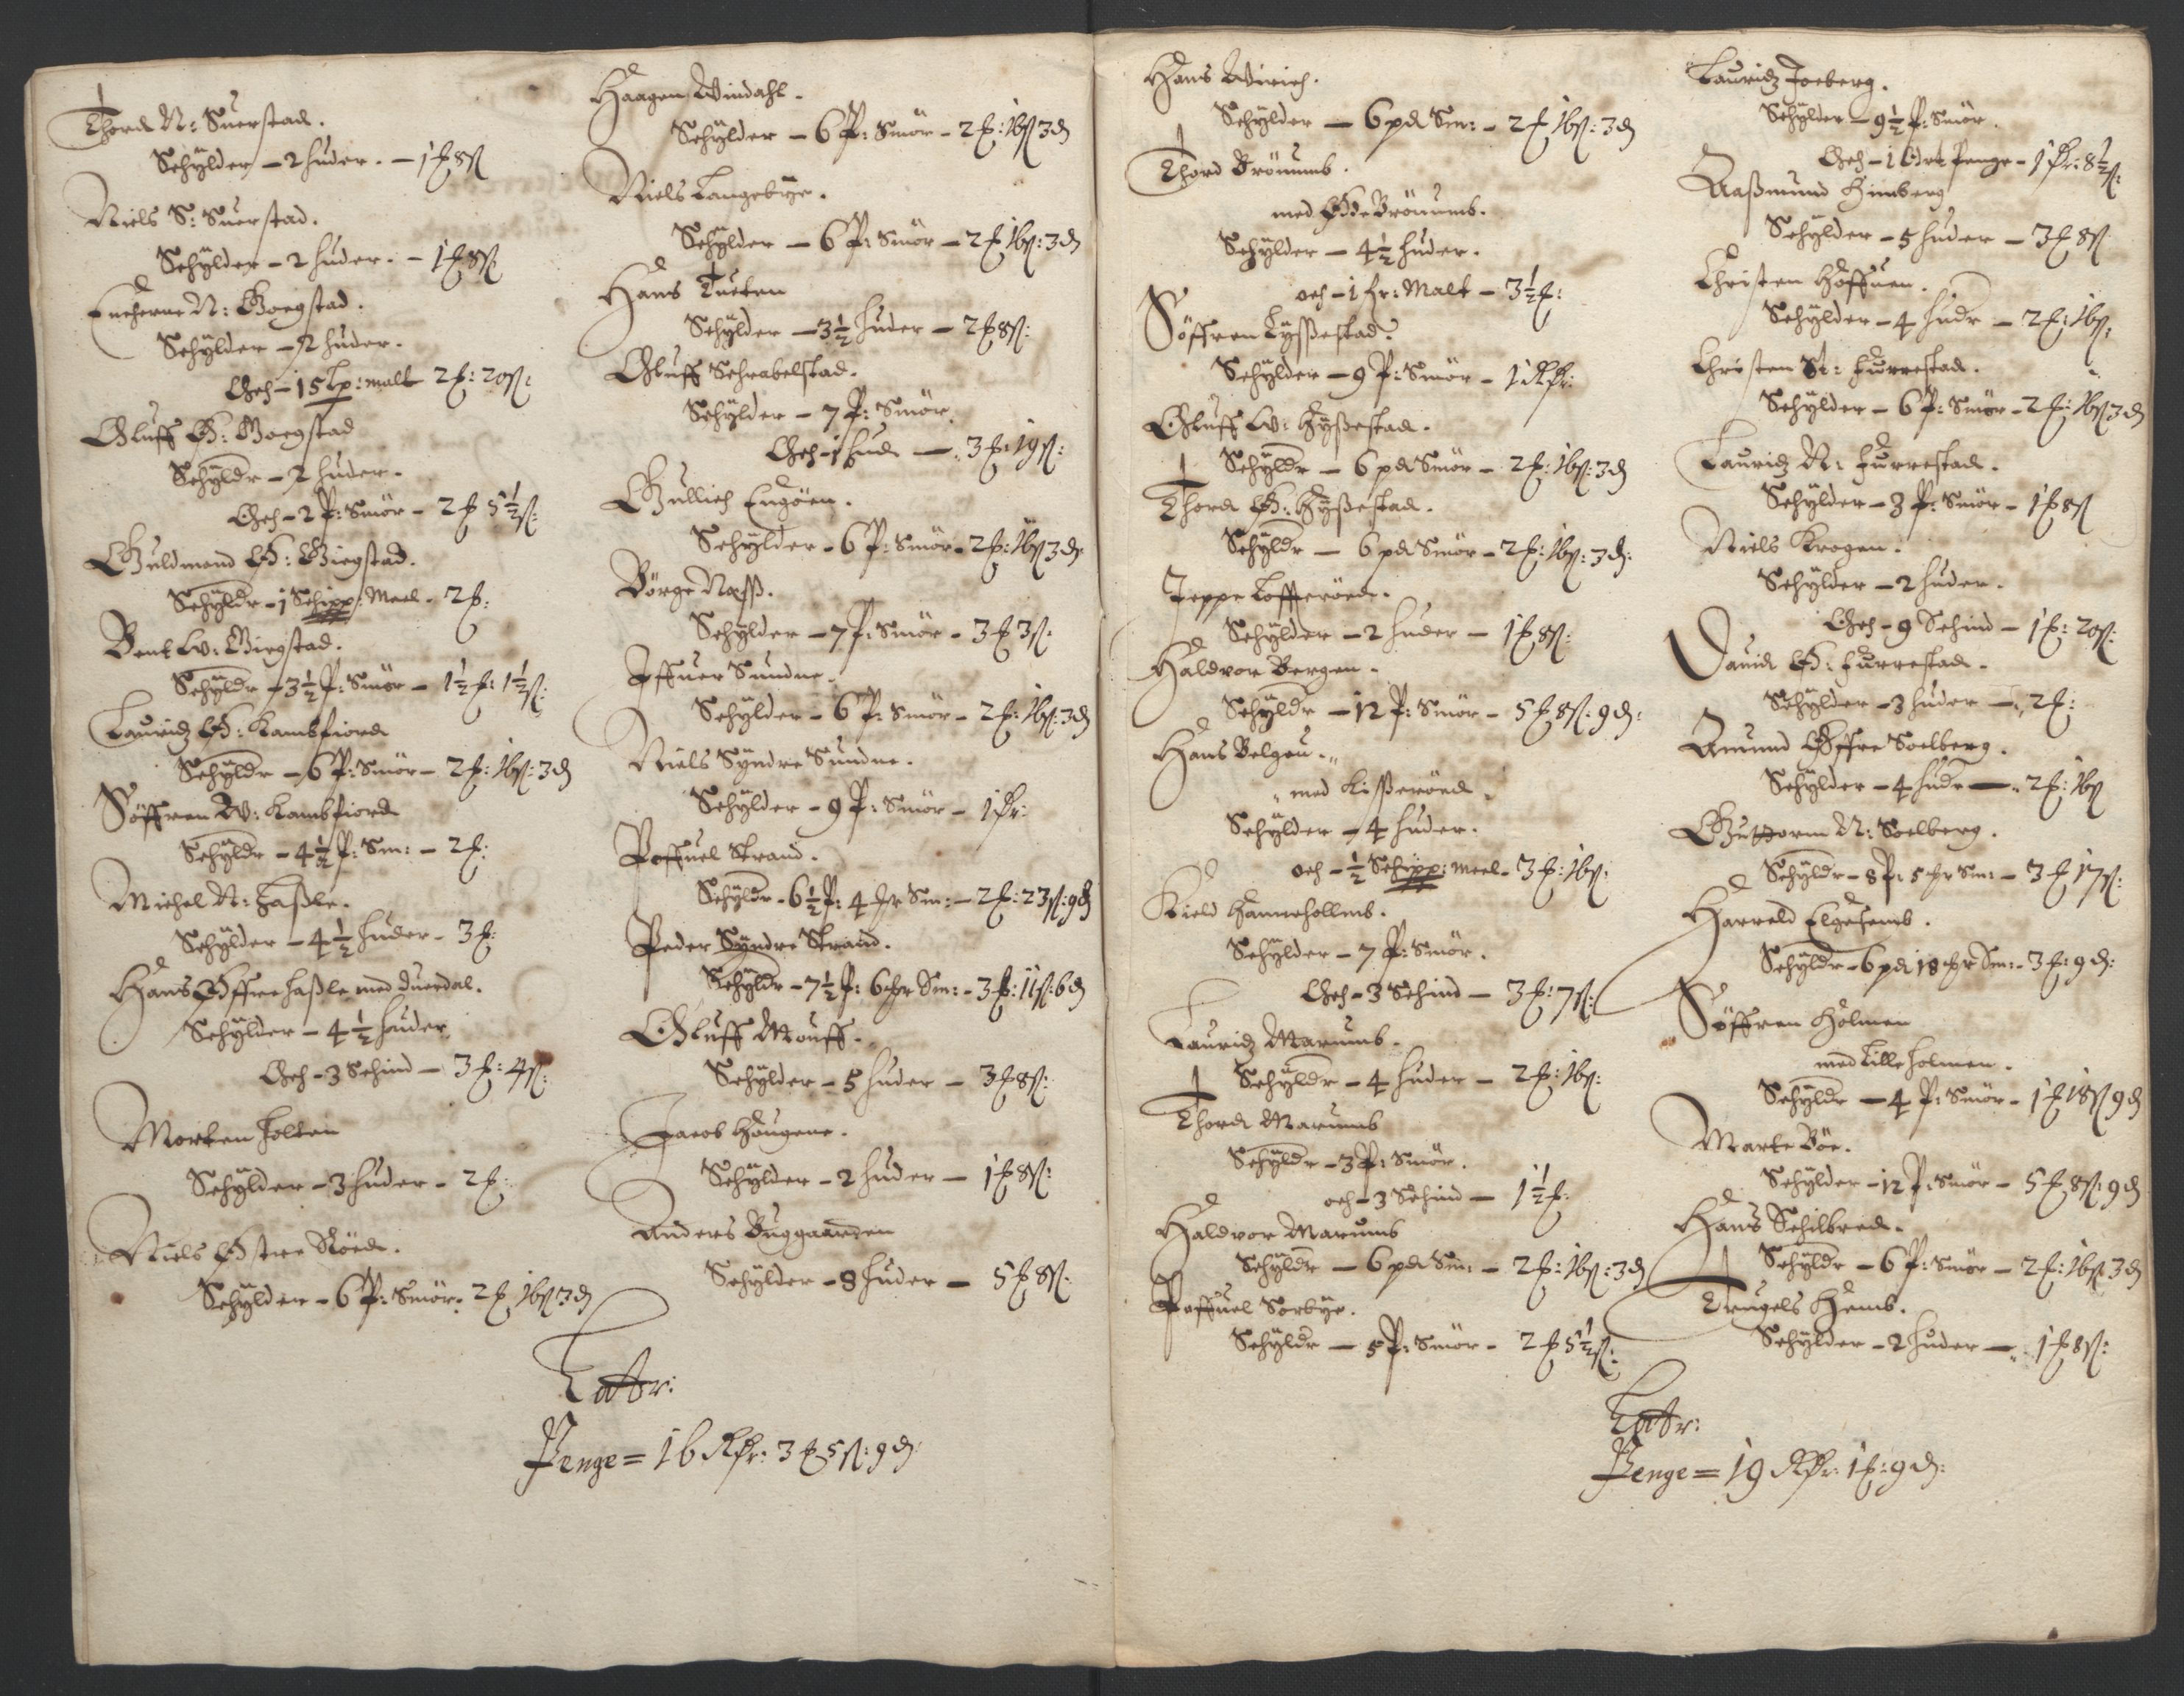 Thord N: Suerstad.
Schylder – 2 huder. – 1 £ 8 ß
Niels S: Suerstad.
Schylder – 2 huder. – 1 £ 8 ß
N: Gogstad.
Schylder – 2 huder.
Och – 15 Lp: malt 2 £: 20 ß:
Oluff Ø: Gogstad
Schyldr – 2 huder.
Och – 2 P: Smör – 2 £ 5½ ß:
Guldmand Ø: Giegstad.
Schyldr – 1 Schipp: Meel – 2 £:
Bent W: Giegstad.
Schyldr – 3½ P: Smör – 1½ £: 1½ ß:
Lauridz Ø: Kambfiord
Schyldr – 6 P: Smör – 2 £: 16 ß: 3 d
Söffren W: Kambfiord
Schyldr – 4½ P: Sm: – 2 £:
Michel N: Haßle.
Schylder – 4½ huder – 3 £:
Hans Öffre Haßle med Duerdal.
Schylder – 4½ huder
Och – 3 Schind – 3 £: 4 ß:
Morten Holten
Schylder – 3 huder – 2 £:
Niels Østre Röed.
Schylder – 6 P: Smör: 2 £ 16 ß 3 d
Haagen Windahl.
Schylder – 6 P: Smör – 2 £: 16 ß 3 d
Niels Langebye.
Schylder – 6 P: Smör – 2 £ 16 ß: 3 d
Hans Tueten
Schylder – 3½ huder – 2 £ 8 ß:
Oluff Schrabelstad.
Schylder – 7 P: Smör
Och – 1 hud – 3 £: 19 ß:
Gullich Engöen.
Schylder – 6 P: Smör – 2 £: 16 ß 3 d
Börge Næss.
Schylder – 7 P: Smör – 3 £ 3 ß:
Iffuer Sundne.
Schylder – 6 P: Smör – 2 £: 16 ß: 3 d
Niels Syndre Sundne.
Schylder – 9 P: Smör – 1 Rr:
Poffuel Strand.
Schyldr – 6½ P: 4 mr Sm: – 2 £: 23 ß: 9 d
Peder Syndre Strand.
Schyldr – 7½ P: 6 mr Sm: – 3 £: 11 ß: 6 d
Oluff Mouff.
Schylder – 5 huder – 3 £ 8 ß:
Jacob Haugene.
Schylder – 2 huder – 1 £ 8 ß:
Anders Buggaarden
Schylder – 8 huder – 5 £ 8 ß:
Latr:
Penge = 16 Rdr: 3 £ 5 ß: 9 d:
Hans Wirich.
Schylder – 6 pd Sm: – 2 £ 16 ß: 3 d
Thord Brönumb.
med Öde Brönumb.
Schylder – 4½ huder.
och – 1 hr: Malt – 3½ £:
Söffren Hyssestad.
Schylder – 9 P: Smör – 1 Rdr:
Oluff W: Hyßestad.
Schyldr – 6 pd Smör – 2 £: 16 ß: 3 d
Thord Ø: Hyßestad.
Schyldr – 6 pd Smör – 2 £: 16 ß: 3 d:
Jeppe Lofteröed.
Schylder – 2 huder – 1 £ 8 ß:
Haldvor Bergen.
Schyldr – 12 P: Smör – 5 £ 8 ß: 9 d:
Hans Belgen.
med Risseröed.
Schylder – 4 huder.
och – ½ Schipp: meel – 3 £: 16 ß:
Kield Hannehollmb.
Schylder – 7 P: Smör.
Och – 3 Schind – 3 £: 7 ß:
Lauridz Marumb.
Schyldr – 4 huder – 2 £: 16 ß:
Thord Marumb
Schyldr – 3 P: Smör.
och – 3 Schind – 1½ £:
Haldvor Marumb
Schyldr – 6 pd Sm: – 2 £: 16 ß: 3 d
Poffuel Sorbye.
Schyldr – 5 P: Smör – 2 £ 5½ ß:
Lauridz Joeberg.
Schylder – 9½ P: Smör.
Och – 1 Ort Penge – 1 Rr: 8½ ß:
Aaßmund Himberg
Schylder – 5 huder – 3 £ 8 ß
Christen Höffuen.
Schylder – 4 hudr – 2 £: 16 ß:
Christen St: Furrestad.
Schylder – 6 P: Smör – 2 £: 16 ß 3 d
Lauridz N: Furrestad.
Schylder – 3 P: Smör – 1 £ 8 ß
Niels Krogen.
Schylder – 2 huder.
Och – 9 Schind – 1 £: 20 ß:
Dauid Ø: Furrestad.
Schylder – 3 huder – 2 £:
Amund Öffre Soelberg.
Schylder – 4 hudr – 2 £: 16 ß
Guttorm N: Soelberg.
Schyldr – 8 P: 5 mr Sm: – 3 £ 17 ß:
Harreld Elgesemb.
Schyldr – 6 pd 18 mr Sm: – 3 £: 9 d:
Söffren Holmen
med Lille Holmen.
Schyldr – 4 P: Smör – 1 £ 18 ß 9 d
Marte Böe.
Schylder – 12 P: Smör – 5 £ 8 ß: 9 d
Hans Schilbred.
Schyldr – 6 P: Smör – 2 £: 16 ß: 3 d
Trugels Hemb.
Schylder – 2 huder – 1 £ 8 ß:
Latr:
Penge = 19 Rdr: 1 £: 9 d: